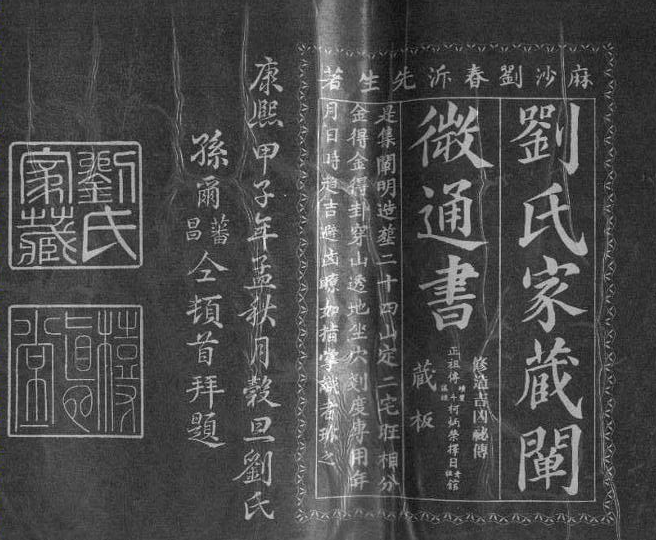 麻沙劉春沂先生著
劉氏家藏闡
微通書
修造吉凶祕傳
正祖傳
柯炳榮擇日館
藏板
是集闡明造塟二十四山定二宅旺相分
金得金得卦穿山透地坐穴刻度專用年
月日時趨吉避凶曠如指掌識者珍之
康熙甲子年孟秋月穀旦劉氏
孫爾蕃昌仝頓首拜題
劉氏家藏